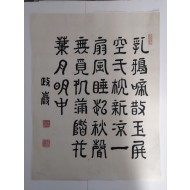 乳鴉啼散玉屏
空一枕新涼一
扇風睡起秋聲
無覓処滿階梧
葉月明中